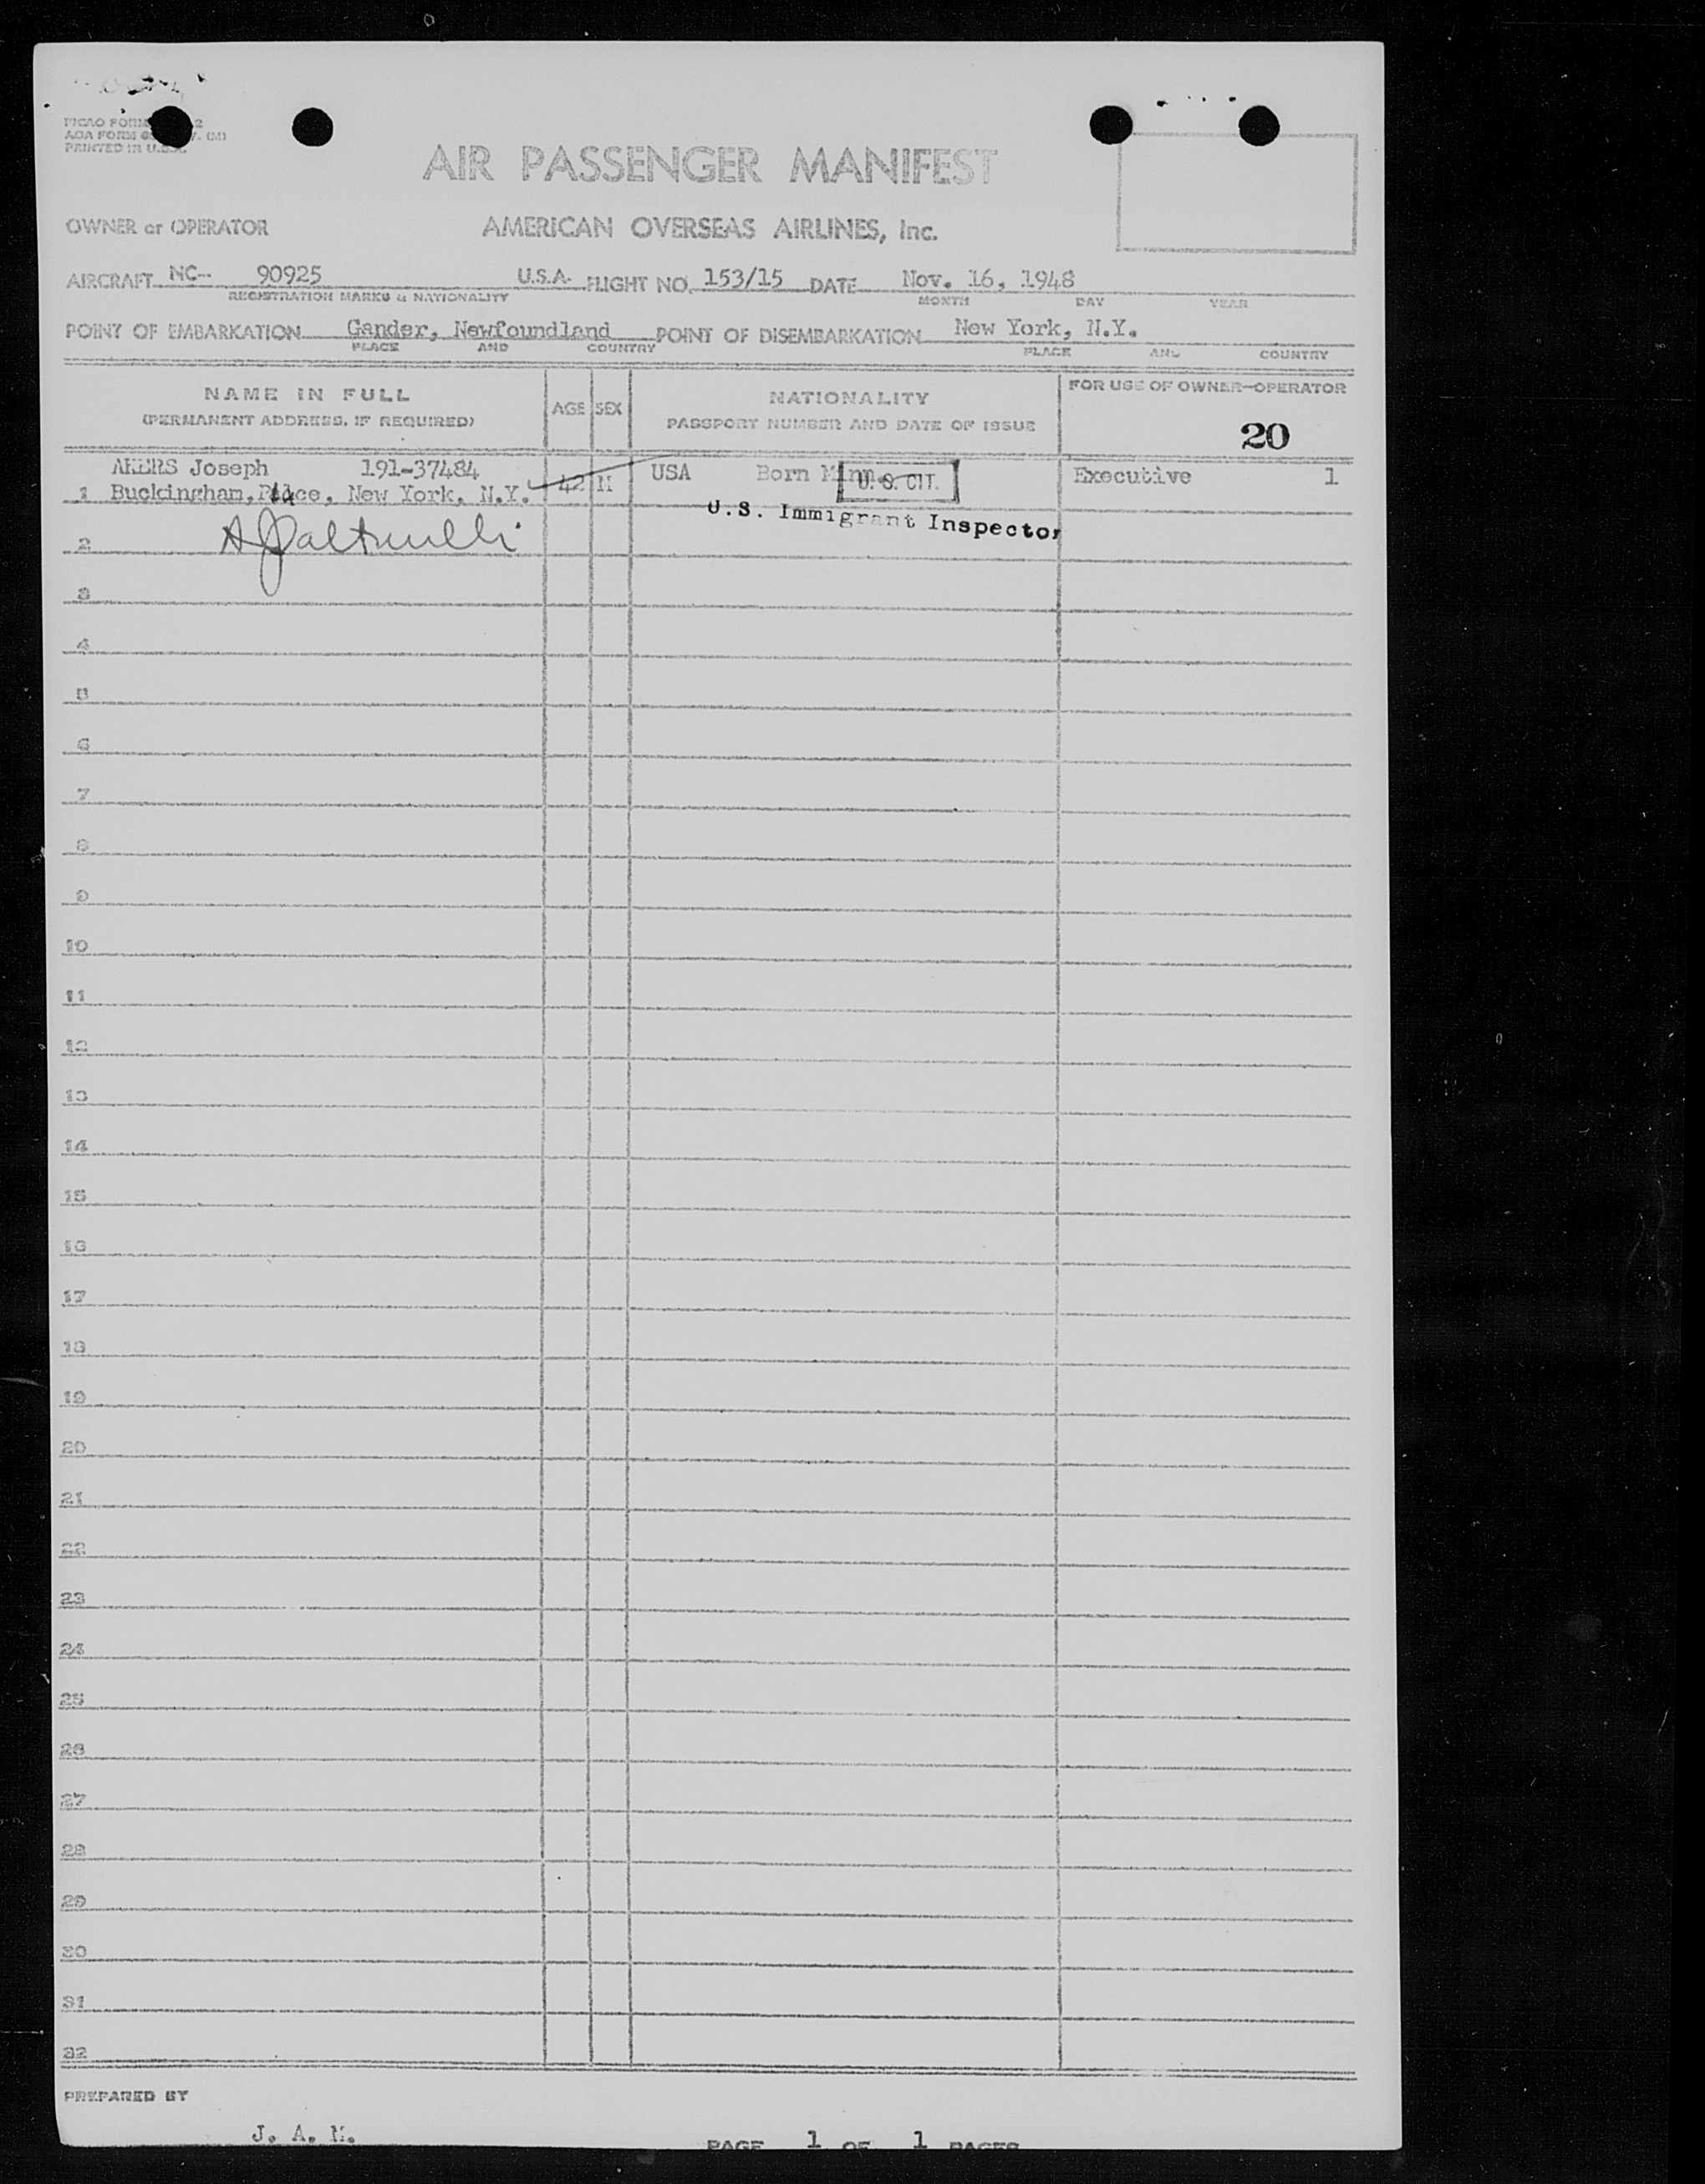 PRINTED IN U.S.A.
AIR PASSENGER MANIFEST
OWNER or OPERATOR AMERICAN OVERSEAS AIRLINES, Inc.
AIRCRAFT NC-- 90925 U.S.A. FLIGHT NO. 153/15 DATE Nov. 16, 1948
REGISTRATION MARKS & NATIONALITY MONTH DAY YEAR
POINT OF EMBARKATION Gander, Newfoundland POINT OF DISEMBARKATION New York, N.Y.
PLACE AND COUNTRY PLACE AND COUNTRY
NAME IN FULL AGE SEX NATIONALITY FOR USE OF OWNER-OPERATOR
(PERMANENT ADDRESS, IF REQUIRED) PASSPORT NUMBER AND DATE OF ISSUE
20
AKERS Joseph 191-37484 42 M USA Born Minn. U.S. CIT. Executive 1
1 Buckingham, Place, New York, N.Y.
U.S. Immigrant Inspector
2
3
4
5
6
7
8
9
10
11
12
13
14
15
16
17
18
19
20
21
22
23
24
25
26
27
28
29
30
31
32
PREPARED BY
J. A. M.
PAGE 1 OF 1 PAGES